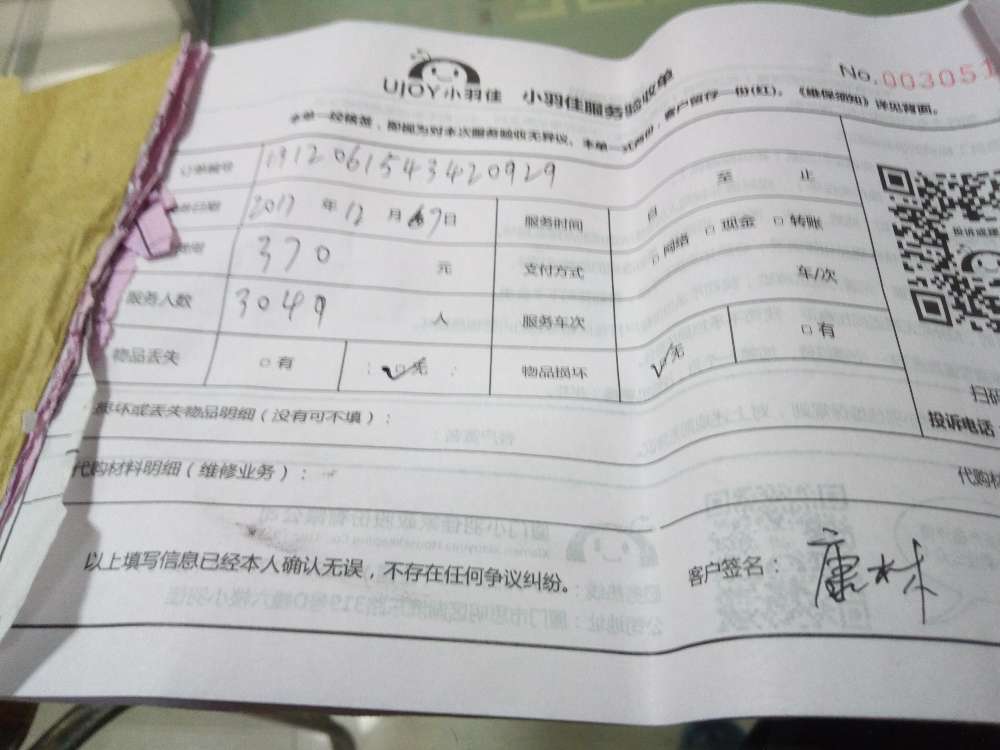 UJOY小羽佳 小羽佳服务验收单 No.003051
本单一经签签，即视为对本次服务验收无异议。本单一式两份，客户留存一份(红)。《维保须知》详见背面。
订单编号 1912061543420929
日期 2017年12月67日 服务时间 自 至 止
370 元 支付方式 □网络 □现金 □转账
服务人数 3049 人 服务车次 车/次
物品丢失 □有 ☑无 物品损坏 ☑无 □有
投诉或建
扫码
投诉电话
损坏或丢失物品明细（没有可不填）：
代购材料明细（维修业务）： 代购材
以上填写信息已经本人确认无误，不存在任何争议纠纷。 客户签名：康木林